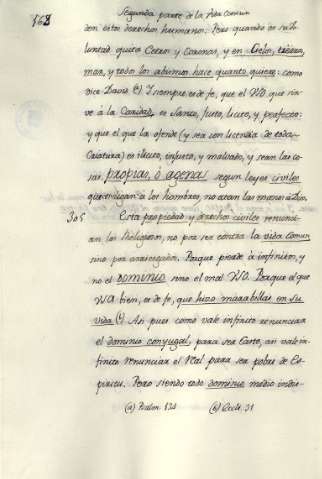 168
Segunda parte de la Vida Comun
don estos derechos humanos. Pero quando es su Vo-
luntad quita Cetros y Coronas, y en Cielos, tierra,
mar, y todos los abismos hace quanto quiere: como
dice David (a) Y siempre es de fe, que el USO que sir-
ve à la Caridad, es Santo, Justo, licito, y perfecto:
y que el que la ofende (y sea con licencia de toda
Criatura) es ilicito, injusto, y malvado, y sean las co-
sas propias, ò agenas segun leyes civiles
que obligan à los hombres, no atan las manos à Dios.
305 Esta propiedad, y derecho civiles renunci-
an los Religiosos, no por ser contra la vida Comun
sino por arriesgados. Porque pierde à infinitos, y
no el DOMINIO sino el mal USO. Porque el que
USA bien, es de fe, que hizo marabillas en Su
Vida (b) Asi pues como vale infinito renunciar
el dominio conyugal, para ser Casto, asi vale in-
finito renunciar el Real para ser pobre de Es-
piritu. Pero siendo todo dominio medio indis-
(a) Psalm. 134 (b) Eccli. 31